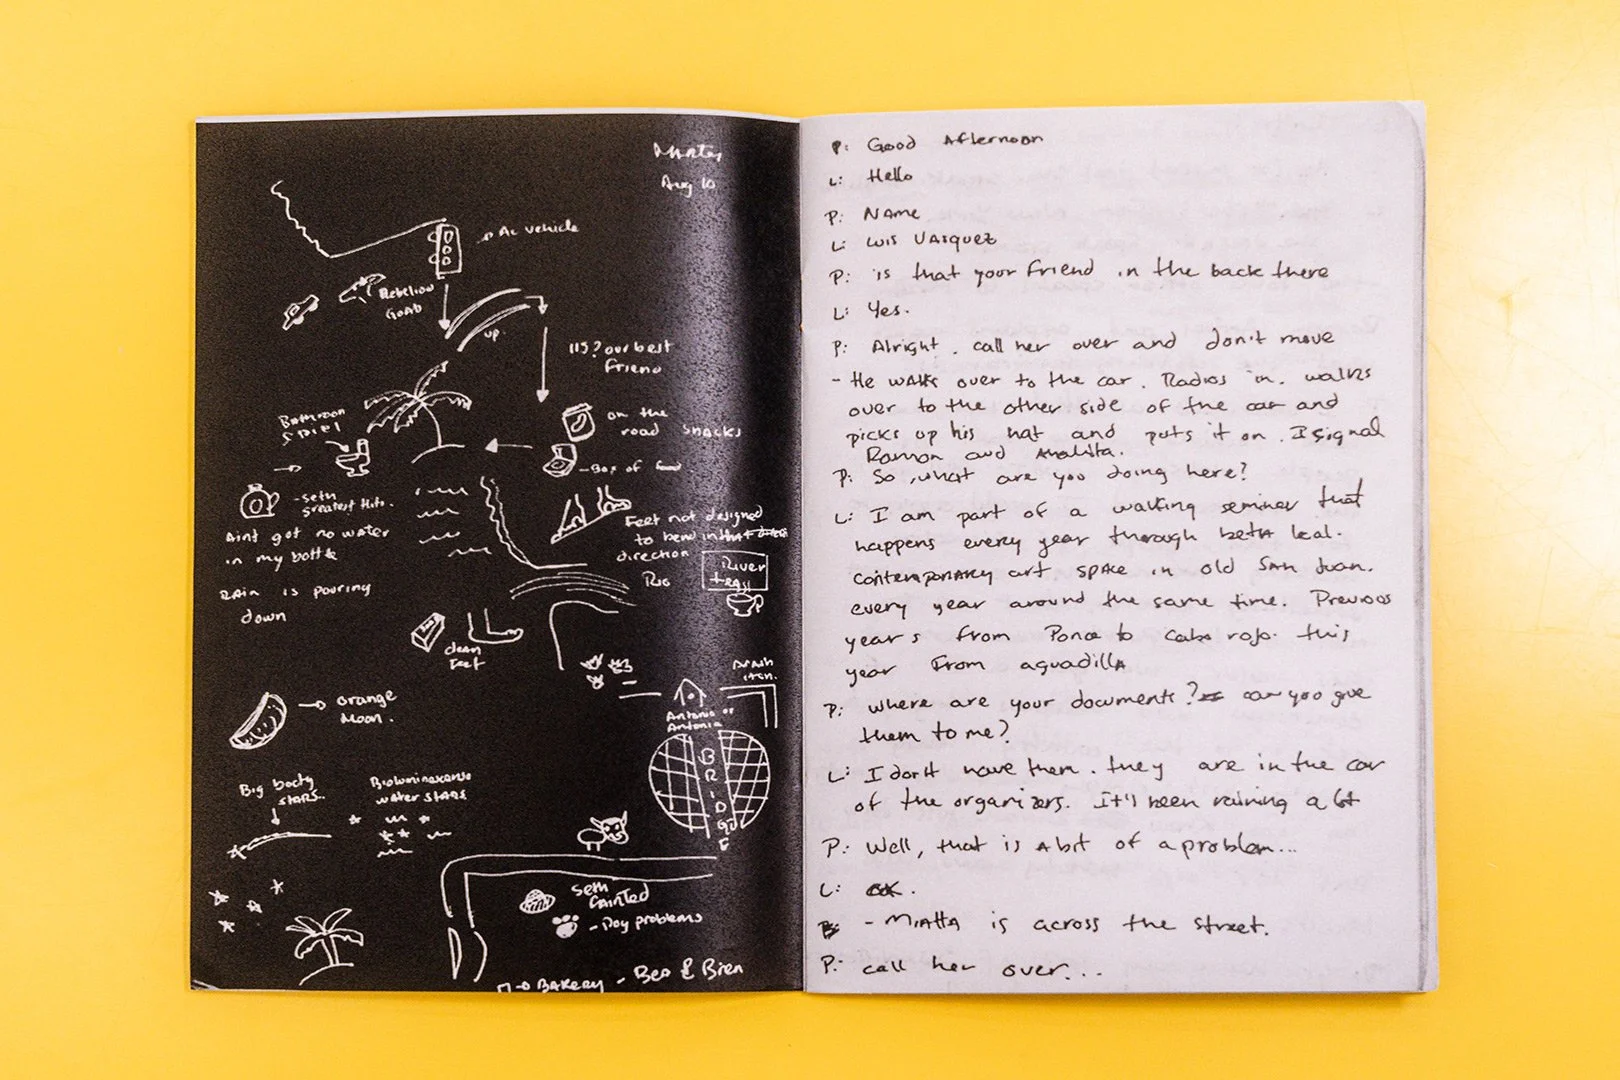 Aug 10
Ac vehicle
Rebelion
Goat
up.
115? our best
Friend
Bathroom
on the
road snacks
-Box of food
-Seth
greatest Hits.
Aint got no water
in my bottle
Rain is pouring
down
Feet not designed
to bend in that
direction
River
Rio
clean
Feet
orange
Moon.
Antonio or
Antonia
BRIDGE
Big booty
stars..
Bioluminescense
water stars
Seth
fainted
- Dog problems
BAKERY - Ben & Bien
P: Good Afternoon
L: Hello
P: NAme
L: Luis VAsquez
P: is that your friend in the back there
L: Yes.
P: Alright. call her over and don't move
- He walks over to the car. Radios in. walks
over to the other side of the car and
picks up his hat and puts it on. I signal
Ramon and Amalita.
P: So, what are you doing here?
L: I am part of a walking seminar that
happens every year through beta local.
contemporary art space in old San Juan.
every year around the same time. Previous
years from Ponce to Cabo rojo. this
year from aguadilla
P: where are your documents? can you give
them to me?
L: I don't have them. they are in the car
of the organizers. It's been raining a lot
P: Well, that is a bit of a problem...
L: OK.
- Miatta is across the street.
P: call her over...